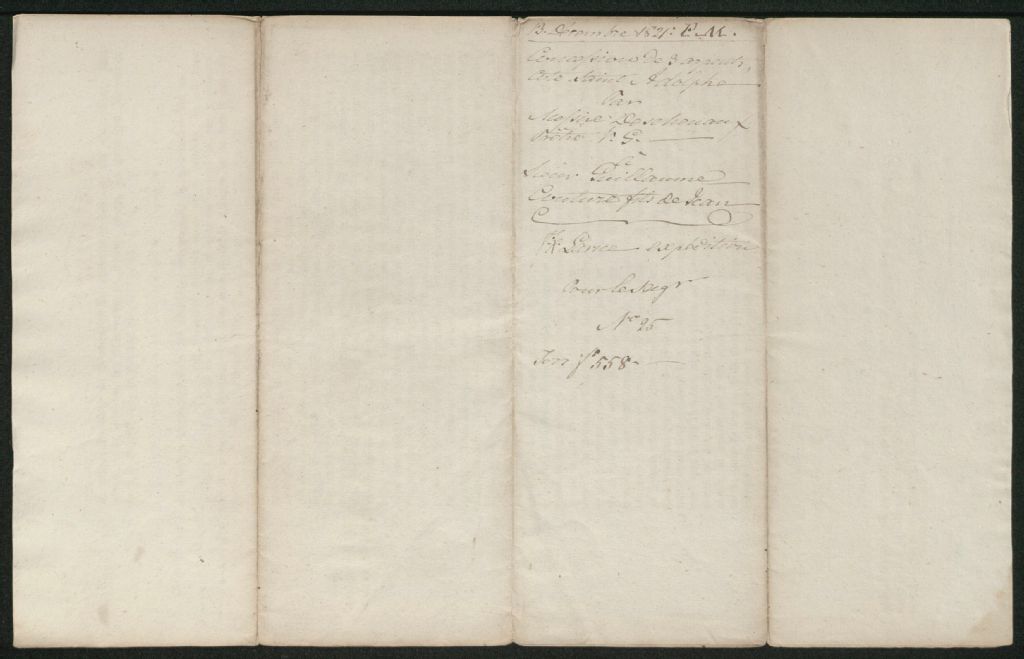 13 Décembre 1821: F. M.
Concession de 3 arpents,
Côte Saint Adolphe
Par
Messire Deschenaux
Prêtre V. G.
à
Sieur Guillaume
Couture fils de Jean
expédition
Pour le Seigr
No 25
Ter fo 558